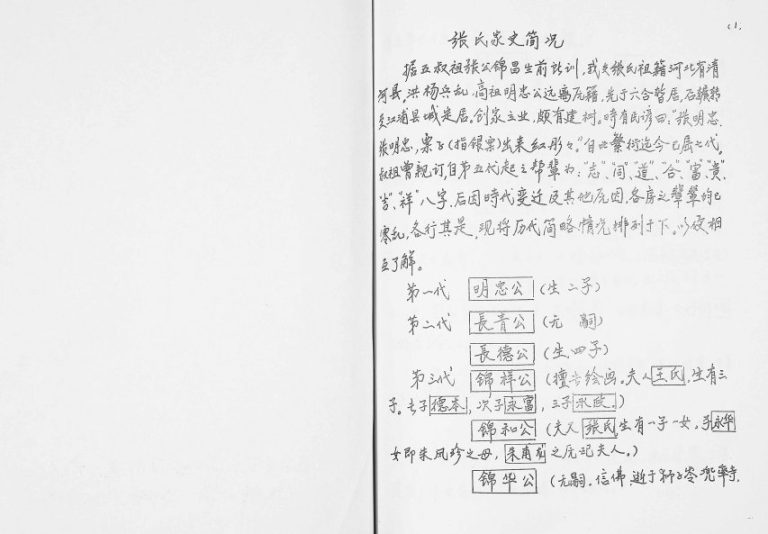 张氏家史简况
据五叔祖张公锦昌生前训,我支张氏祖籍河北省清
河县,洪杨兵乱,高祖明忠公远离原籍,先于六合暂居,后
江浦县城定居。创家立业,颇有建树。时有民谚曰:"张明忠,
张明忠,票子(指银票)出来红彤々。"自此繁衍迄今已历七代。
叔祖曾亲订,自第五代起之辈为:"志"、"同"、"道"、"合"、"富"、"贵"、
"吉"、"祥"八字,后因時代变迁及其他原因,各房之均已
零乱,各行其是,现将历代简略情况排列于下,以便相
互了解。
第一代 明忠公 (生二子)
第二代 長青公 (无嗣)
長德公 (生四子)
第三代 锦祥公 (擅长绘画。夫人王氏,生有三
子。长子德本,次子永富,三子)
锦和公 (夫人张氏生有一子一女。子永华
女即朱凤珍之母,朱甫之原配夫人。)
锦华公 (无嗣。信佛,逝于狮子岑兜率寺.